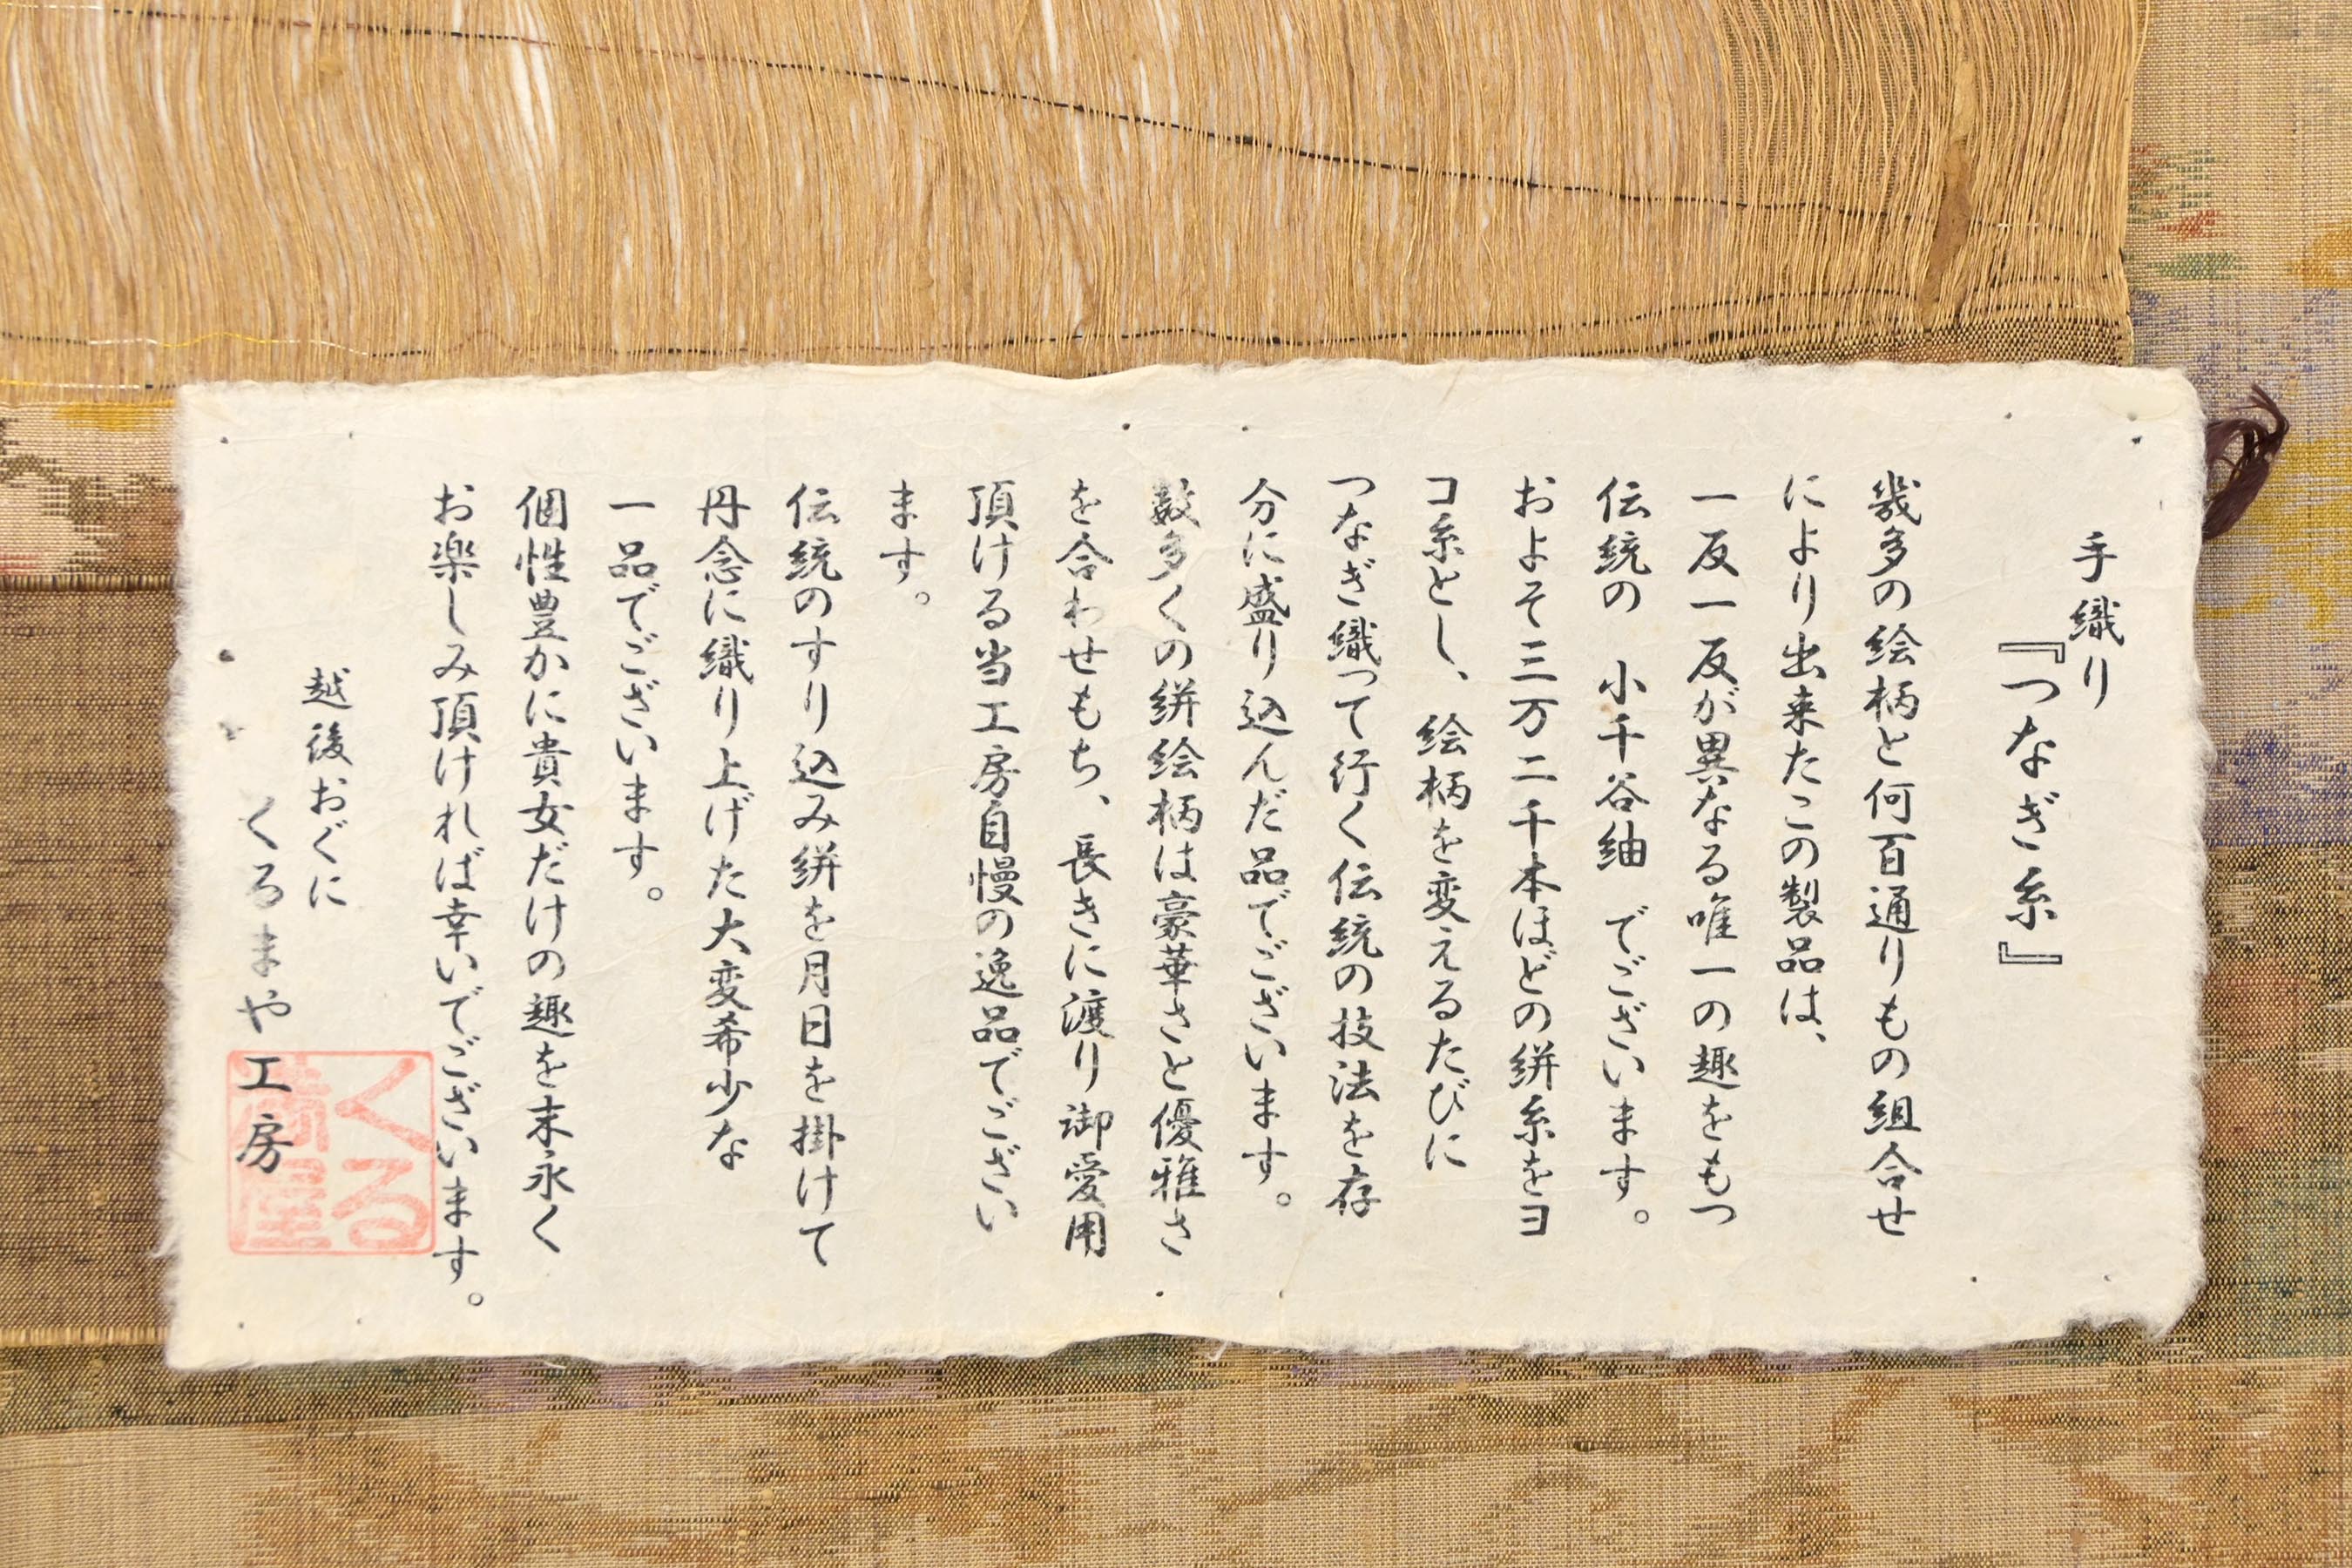 手織り
『つなぎ糸』
幾多の絵柄と何百通りもの組合せ
により出来たこの製品は、
一反一反が異なる唯一の趣をもつ
伝統の　小千谷紬　でございます。
およそ三万二千本ほどの絣糸をヨ
コ糸とし、絵柄を変えるたびに
つなぎ織って行く伝統の技法を存
分に盛り込んだ品でございます。
数多くの絣絵柄は豪華さと優雅さ
を合わせもち、長きに渡り御愛用
頂ける当工房自慢の逸品でござい
ます。
伝統のすり込み絣を月日を掛けて
丹念に織り上げた大変希少な
一品でございます。
個性豊かに貴女だけの趣を末永く
お楽しみ頂ければ幸いでございます。
越後おぐに
くるまや工房
くる
屋